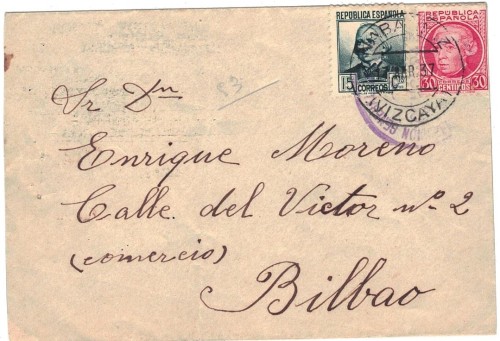 REPUBLICA ESPAÑOLA
15 CORREOS
REPUBLICA
ESPAÑOLA
30 CENTIMOS 30
VIZCAYA
53
Sr Dn
Enrique Moreno
Calle del Victor nº 2
(comercio)
Bilbao